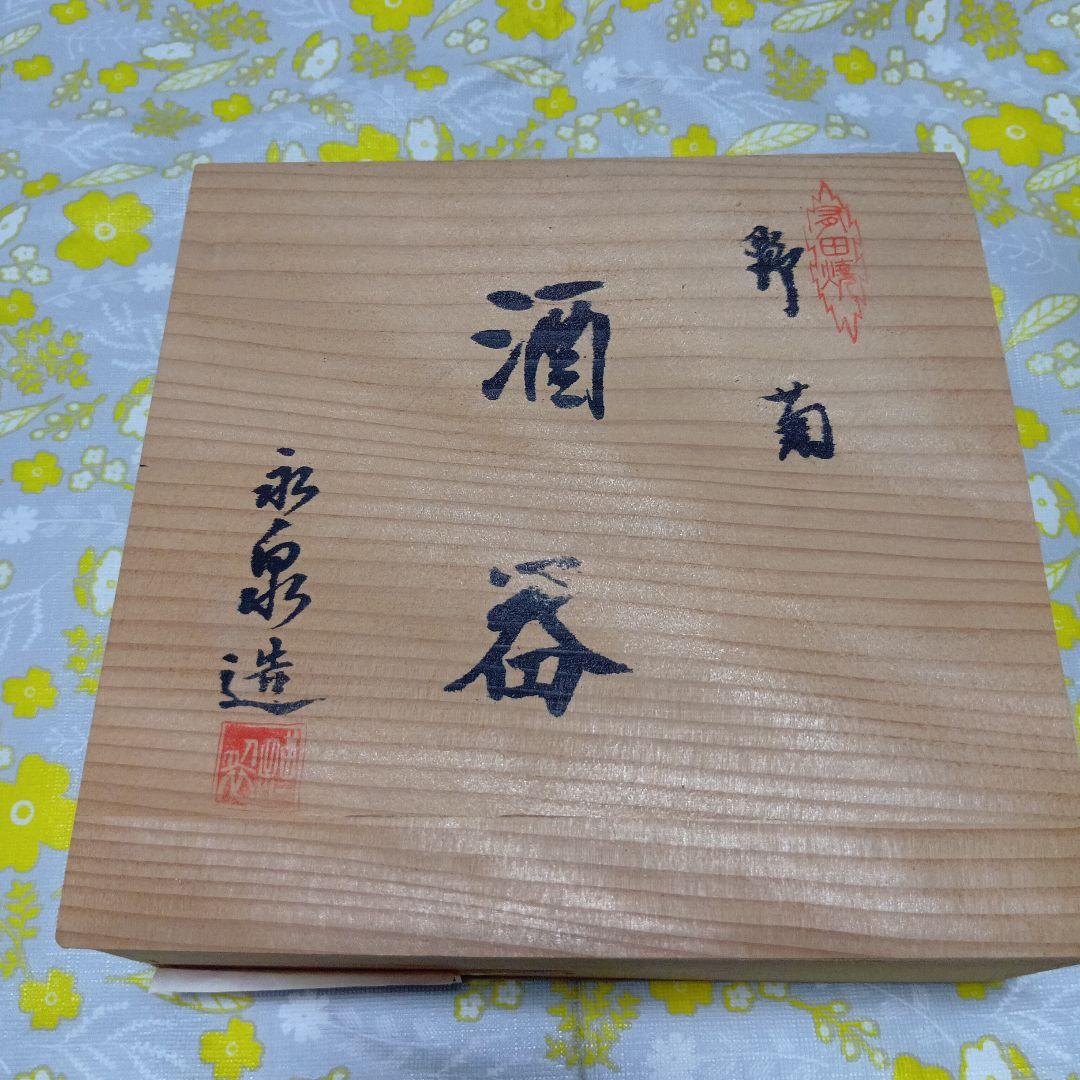 有田焼
野菊
酒器
永泉造